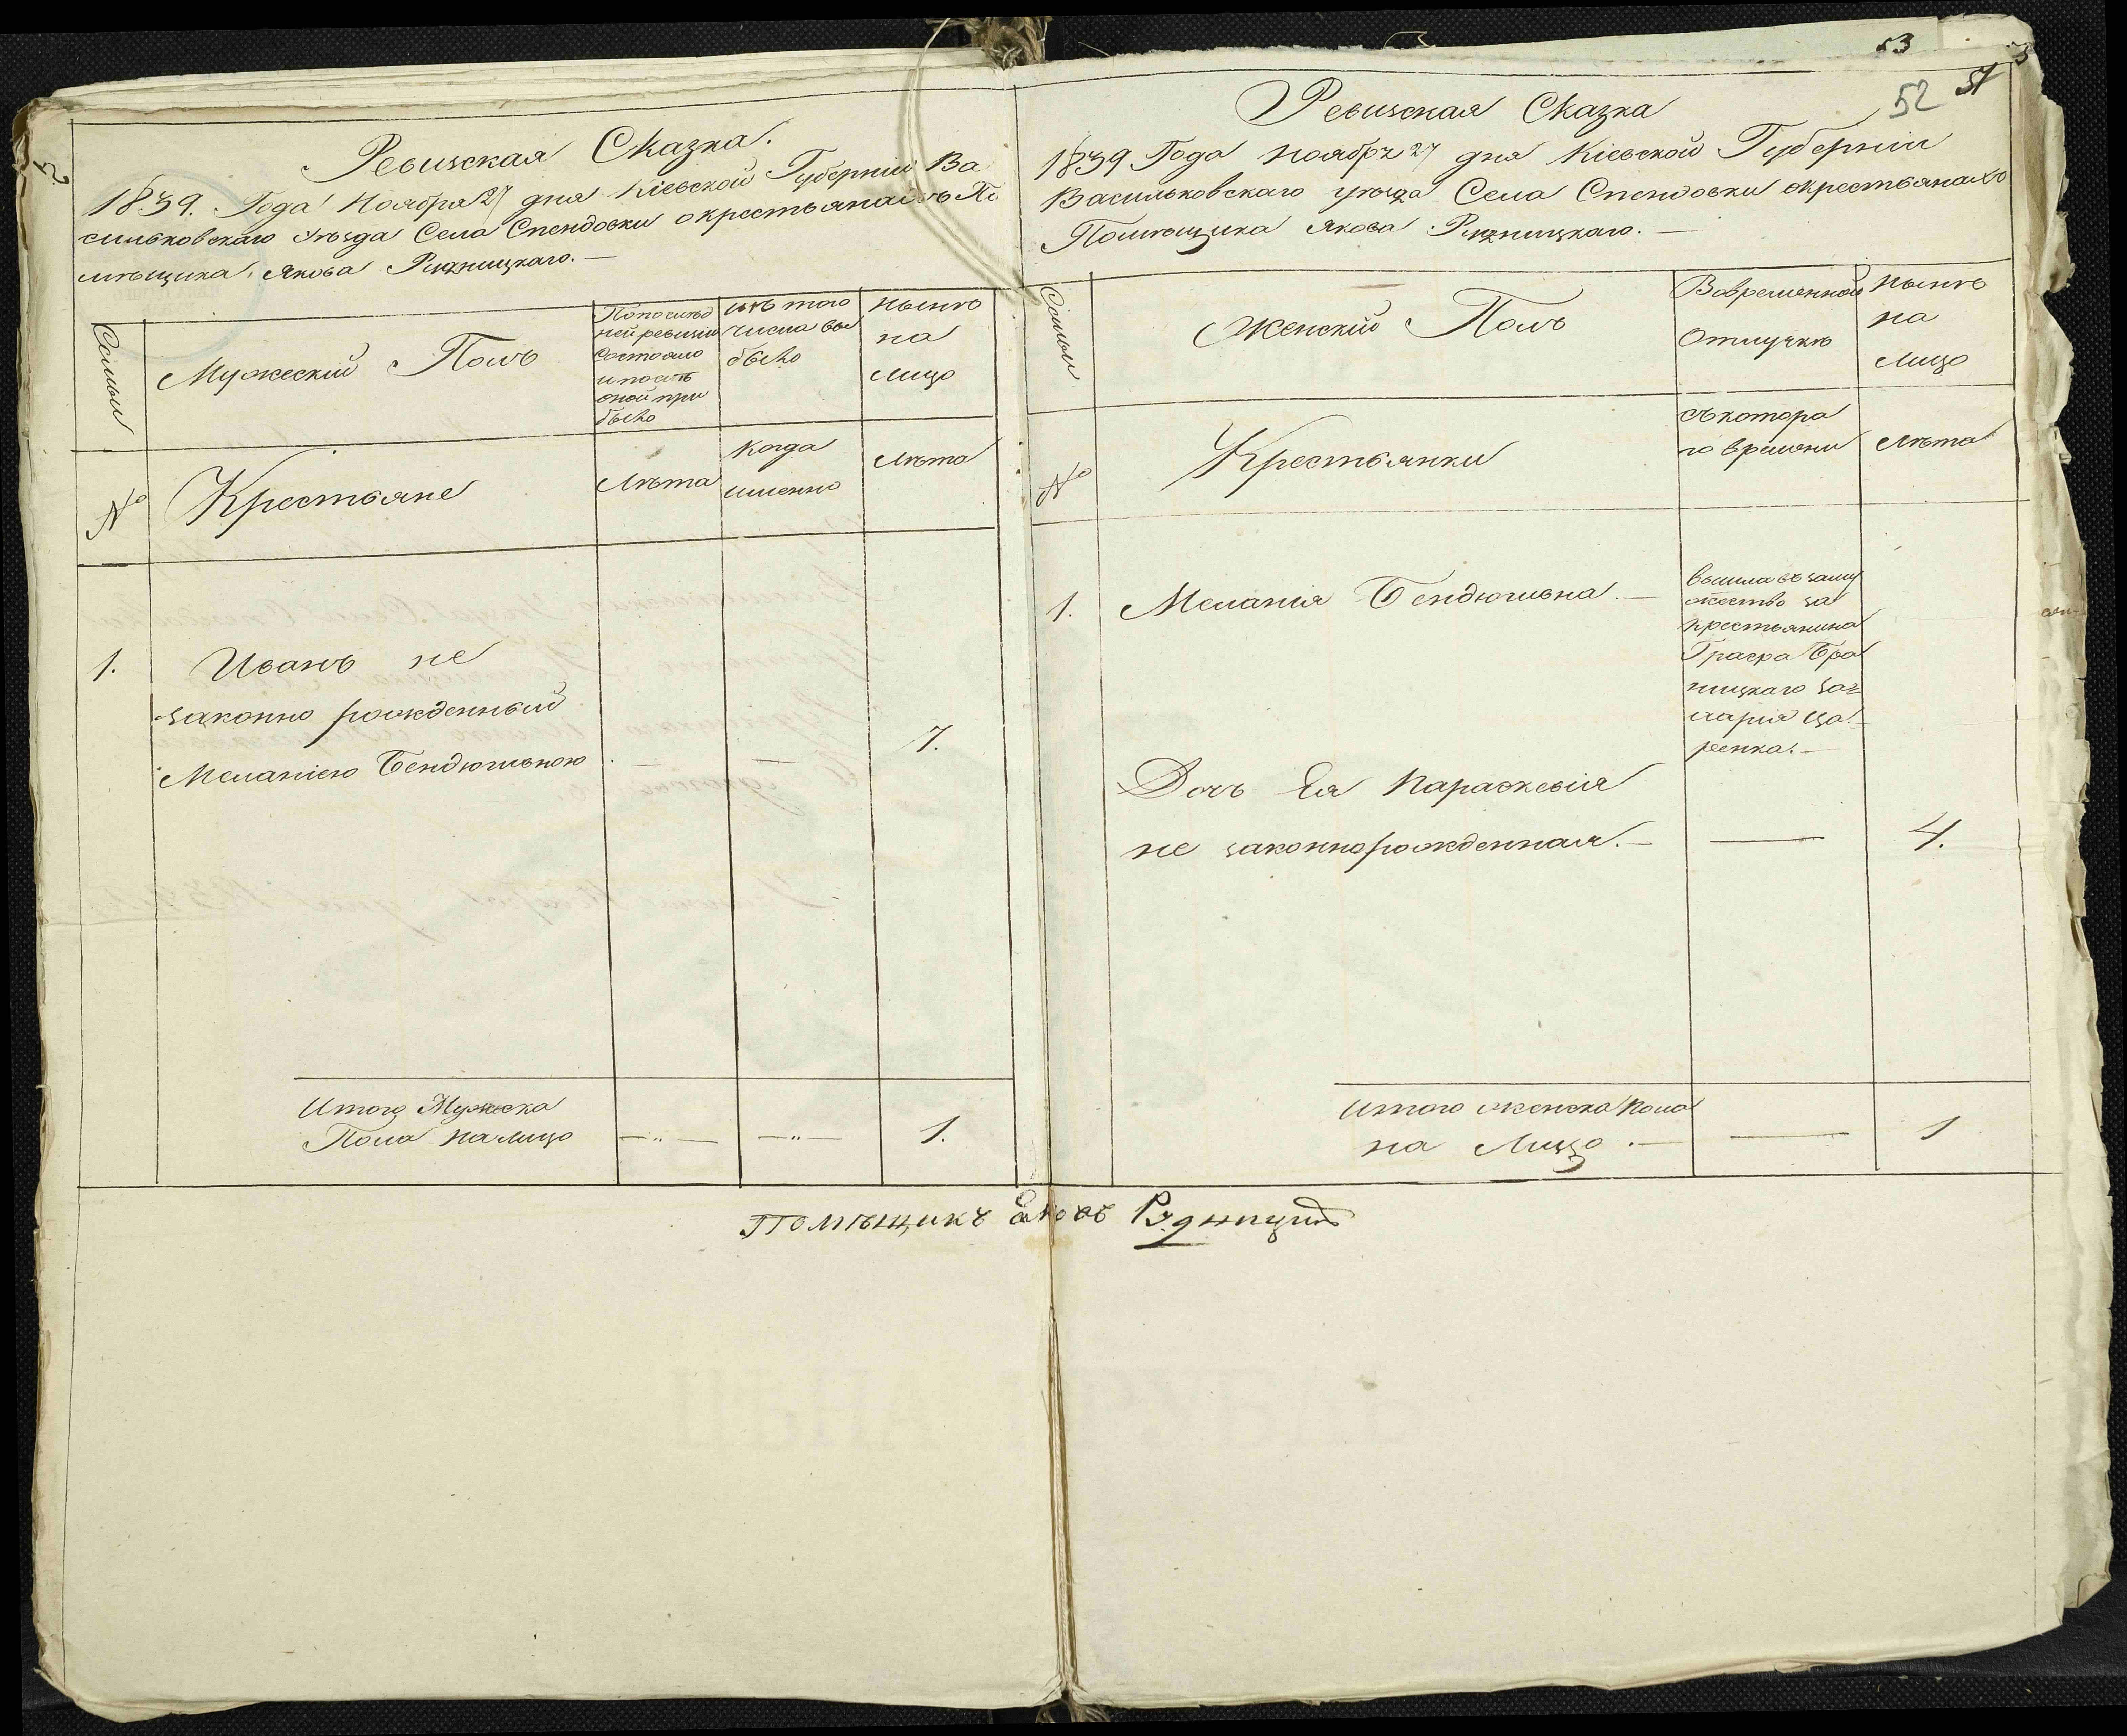 Ревизская Сказка.
1839. Года Ноября 27 дня Кіевской Губерніи Ва
сильковскаго Уѣзда Села Спендовки о крестьянахъ По
мѣщика Якова Ризницкаго. —
Семьи
Мужеский Полъ
По послѣд
ней ревизіи
состояло
и послѣ
оной при
было
изъ того
числа вы
было
Нынѣ
на
лицо
№
Крестьяне
Лѣта
Когда
именно
Лѣта
1.
Иванъ не
законно рожденный
Меланіею Бендюговною
—
—
7.
Итого Мужеска
Пола на лицо
— „ —
— „ —
1.
53
52
51
Ревизская Сказка
1839 Года Ноября 27 дня Кіевской Губерніи
Васильковскаго уѣзда Села Спендовки о крестьянахъ
Помѣщика Якова Ризницкаго. —
Семьи
Женский Полъ
Вовременной
Отлучкѣ
Нынѣ
на
Лицо
№
Крестьянки
съ котора
го времени
Лѣта
1.
Меланія Бендюговна. —
вышла въ заму
жество за
крестьянина
Графа Бра
ницкаго За
харія Ца
ренка. —
Дочь Ея Параскевія
не законнорожденная. —
—
4.
Итого женска Пола
на Лицо. —
—
1
Помѣщикъ Яковъ Ризницкий